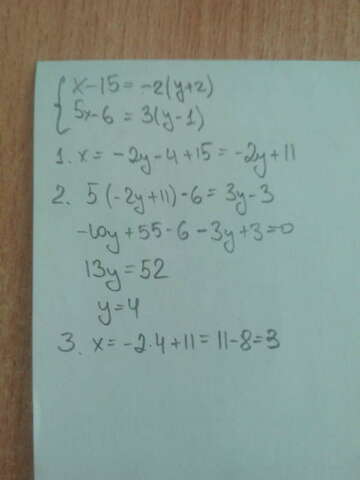 { x-15 = -2(y+2)
5x-6 = 3(y-1)
1. x = -2y-4+15 = -2y+11
2. 5(-2y+11)-6 = 3y-3
-10y+55-6-3y+3=0
13y=52
y=4
3. x = -2·4+11 = 11-8=3